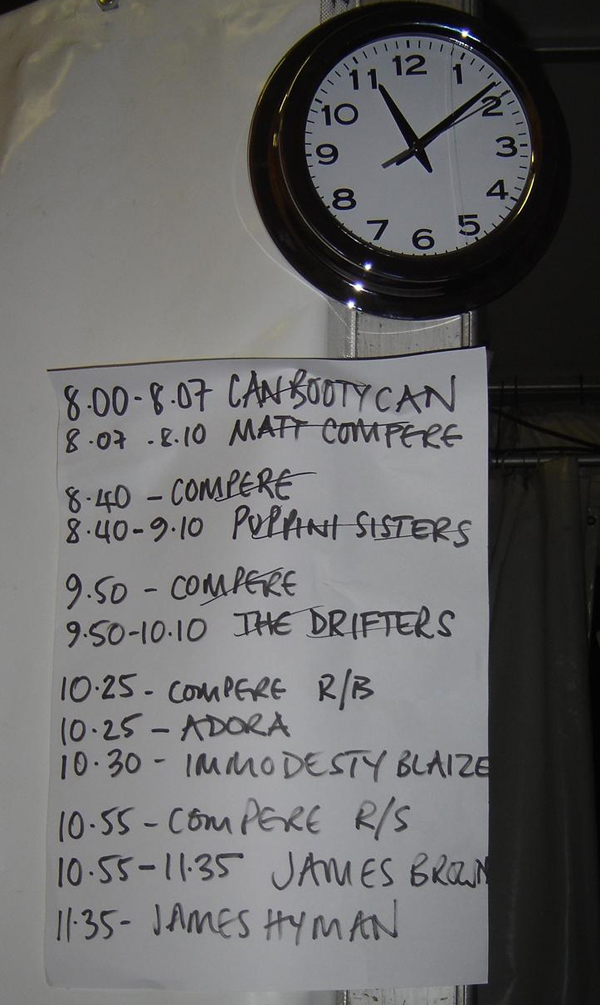 12
1
2
3
4
5
6
7
8
9
10
11
8.00-8.07 CAN BOOTY CAN
8.07 -8.10 MATT COMPERE
8.40 - COMPERE
8.40-9.10 PUPPINI SISTERS
9.50 - COMPERE
9.50-10.10 THE DRIFTERS
10.25- COMPERE R/B
10.25 - ADORA
10.30 - IMMODESTY BLAIZE
10.55 - COMPERE R/S
10.55-11.35 JAMES BROWN
11.35- JAMES HYMAN